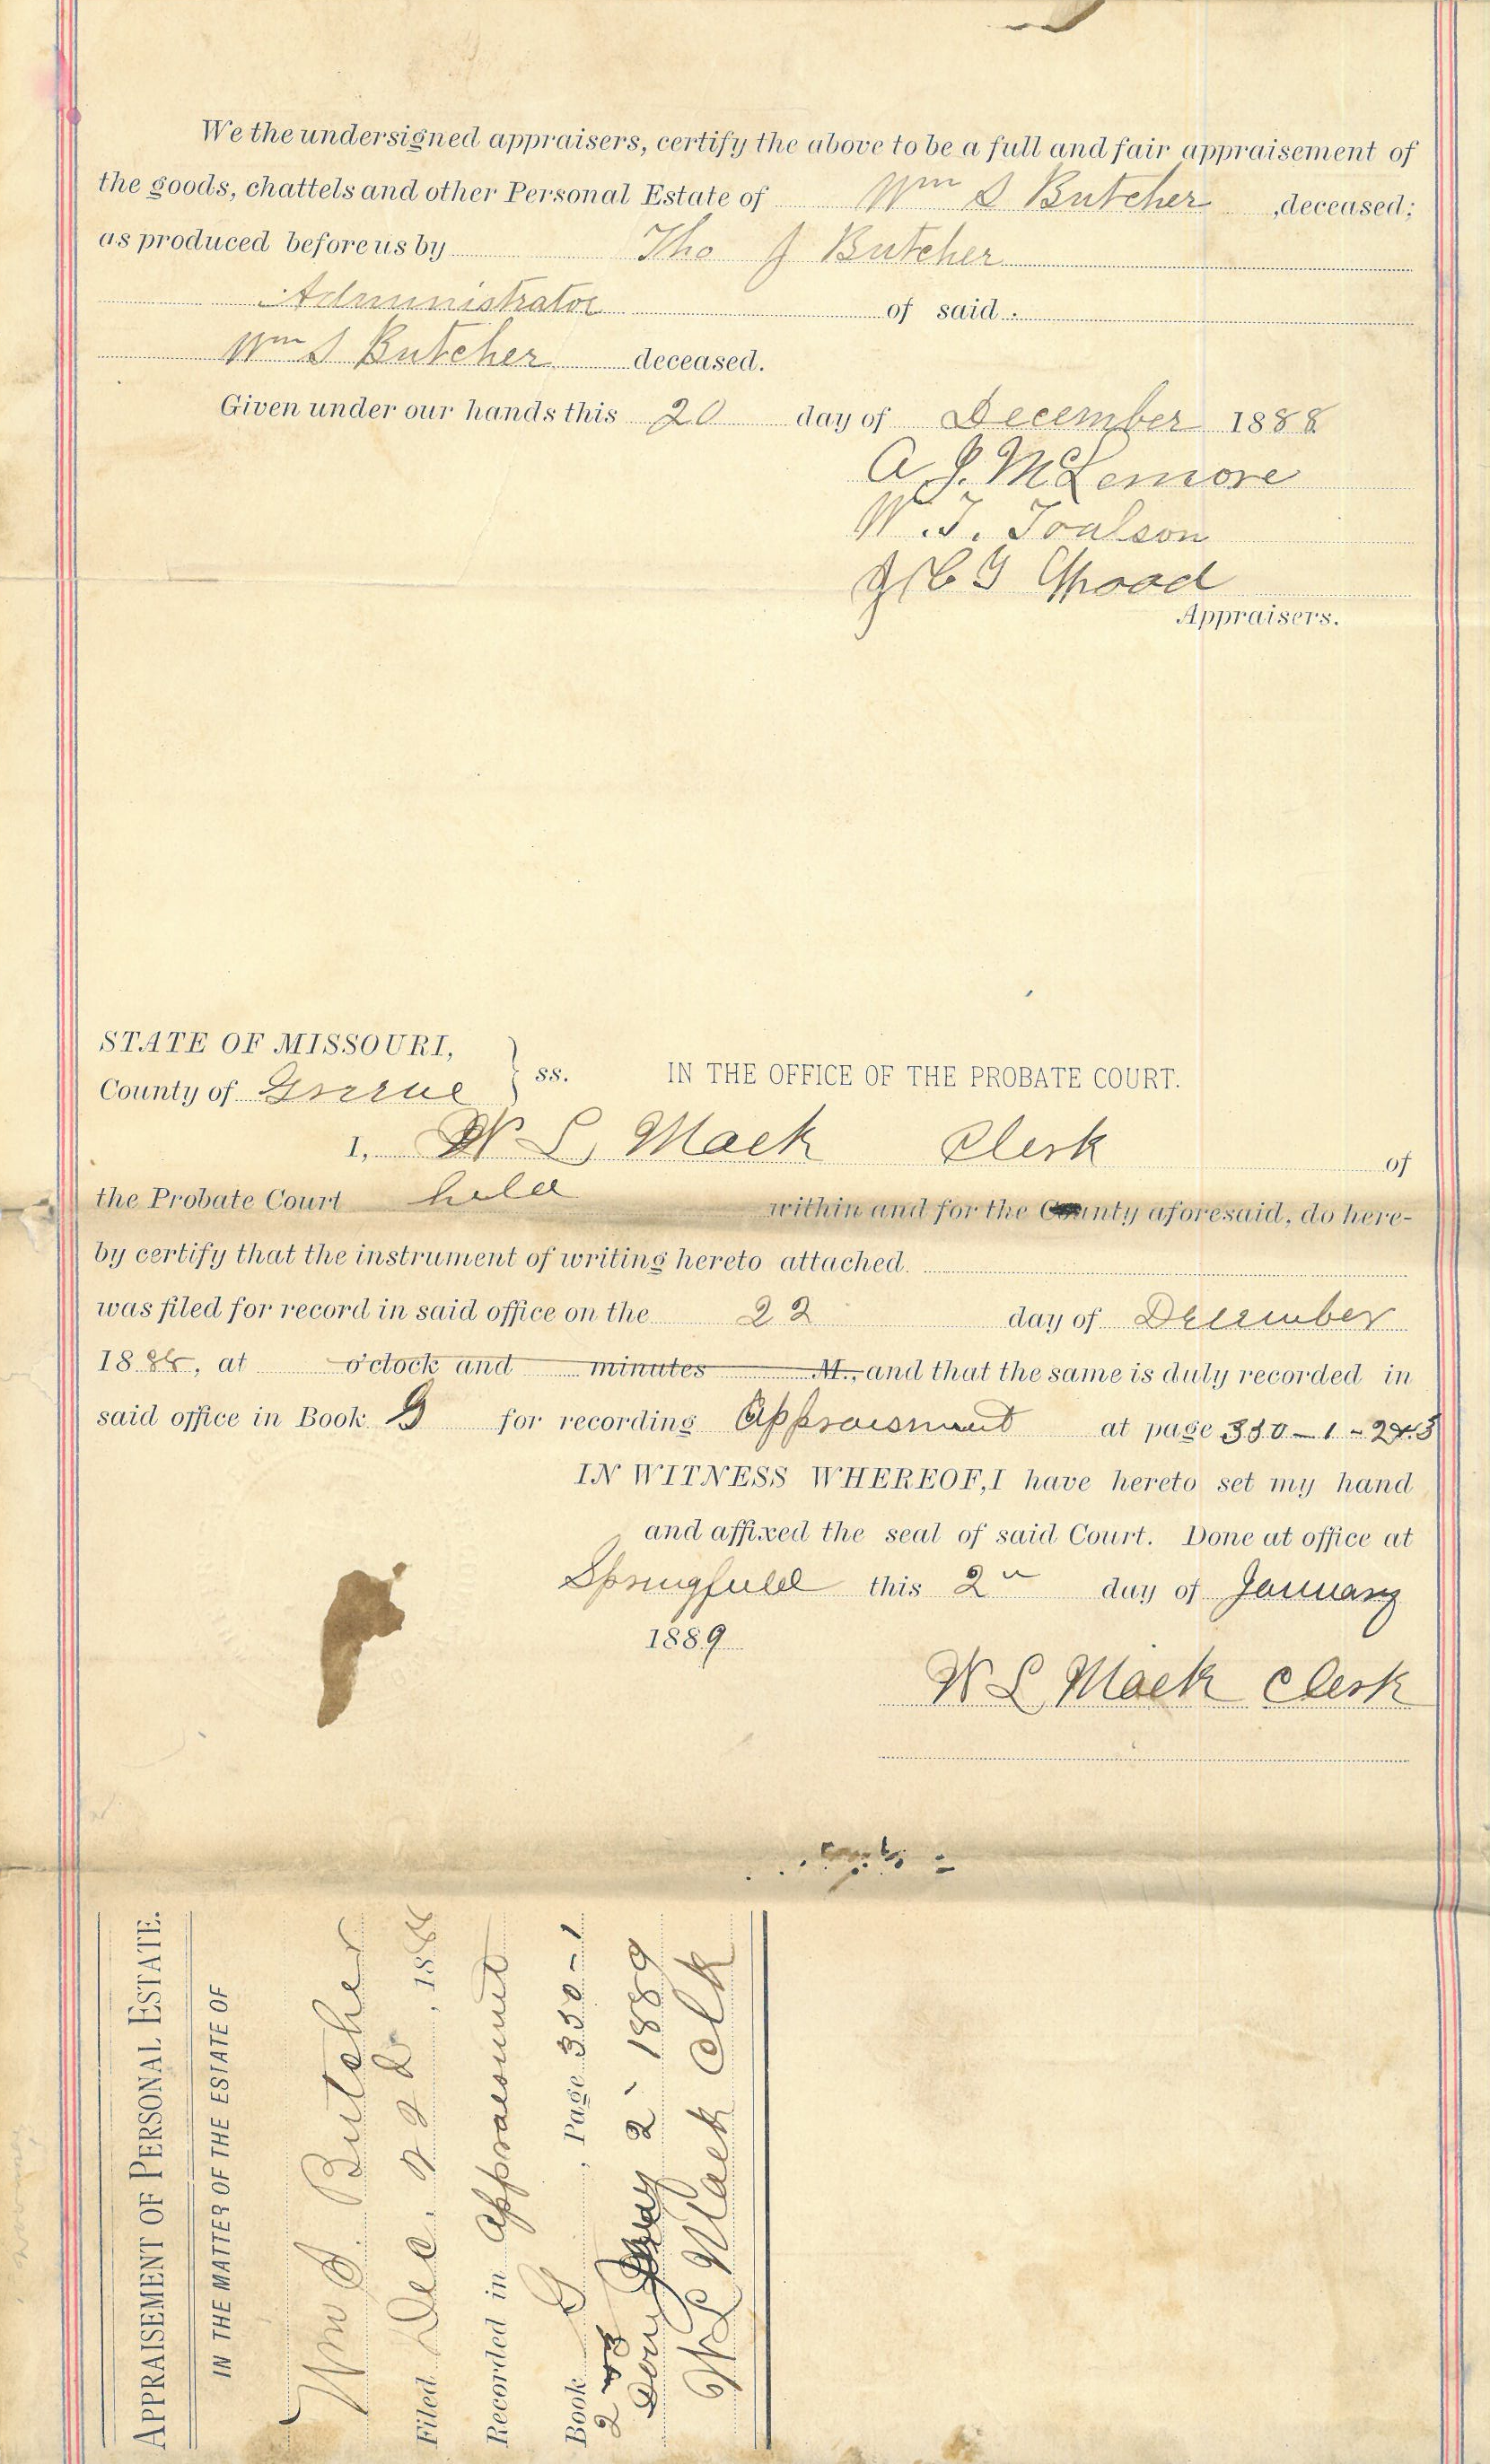 We the undersigned appraisers, certify the above to be a full and fair appraisement of
the goods, chattels and other Personal Estate of Wm S Butcher ,deceased;
as produced before us by Tho J Butcher
Administrator of said
Wm S Butcher deceased.
Given under our hands this 20 day of December 1888
A J. McLemore
W. T. Toalson
Appraisers.
STATE OF MISSOURI,
County of Greene } ss. IN THE OFFICE OF THE PROBATE COURT.
I, W L Mack Clerk of
the Probate Court held within and for the County aforesaid, do here-
by certify that the instrument of writing hereto attached.
was filed for record in said office on the 22 day of December
1888, at o'clock and minutes M., and that the same is duly recorded in
said office in Book G for recording Appraisment at page 350-1-2&3
IN WITNESS WHEREOF, I have hereto set my hand
and affixed the seal of said Court. Done at office at
Springfield this 2" day of January
1889
W L Mack Clerk
APPRAISEMENT OF PERSONAL ESTATE.
IN THE MATTER OF THE ESTATE OF
Wm S. Butcher
Filed Dec. 22d, 1888
Recorded in Appraisment
Book G, Page 350-1
2 &3
2 1889
W L Mack Clk